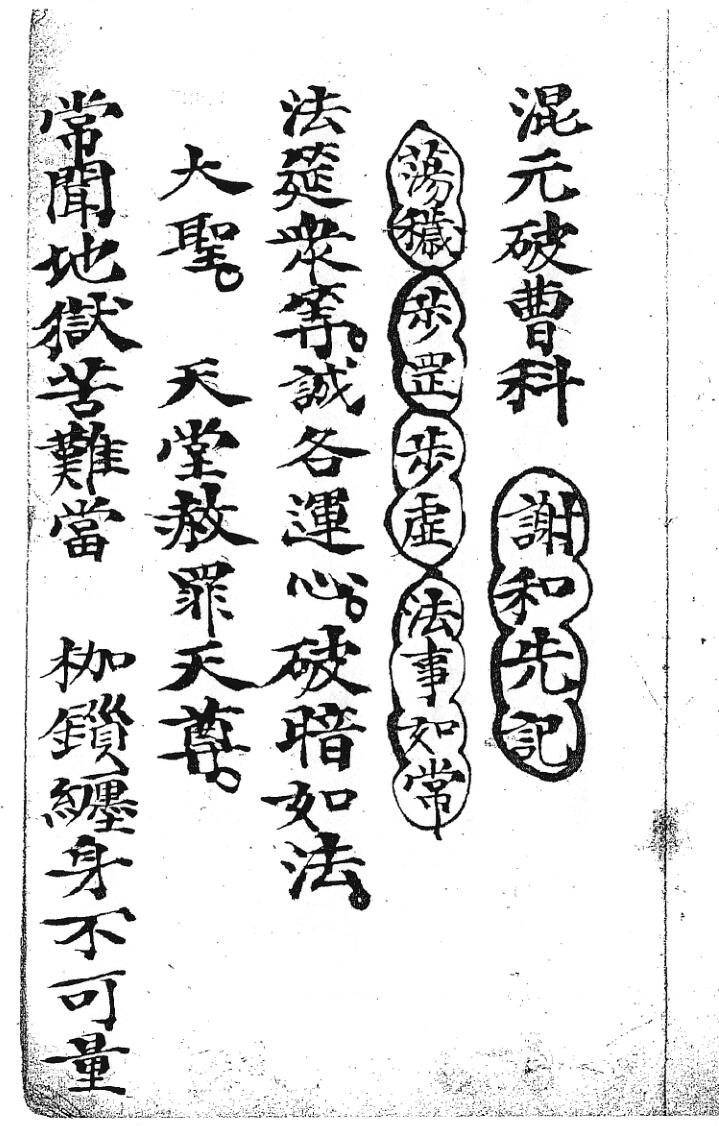 混元破曹科　謝和先記
蕩穢步罡步虛法事如常
法筵衆等。誠各運心。破暗如法。
大聖。　天堂赦罪天尊。
常聞地獄苦難當　枷鎖纏身不可量